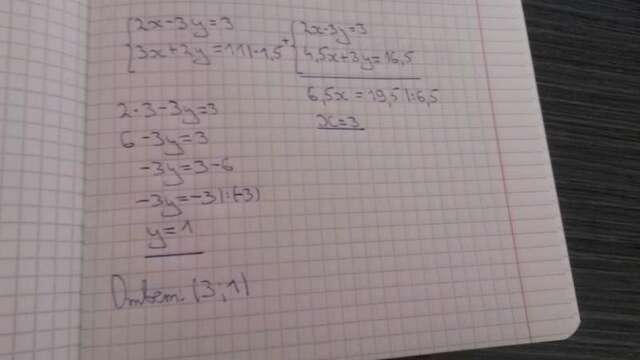 {2x-3y=3
{3x+2y=11|·1,5
+{2x-3y=3
{4,5x+3y=16,5
6,5x=19,5|:6,5
x=3
2·3-3y=3
6-3y=3
-3y=3-6
-3y=-3|:(-3)
y=1
Ответ: (3;1)